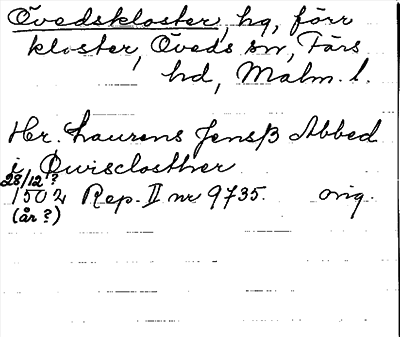 Övedskloster, hg, förr
kloster, Öveds sn, Färs
hd, Malm. l.
Hr. Laurens Jensß Abbed
i Øwisclosther
28/12 ?
1502 Rep. II nr 9735. orig.
(år ?)